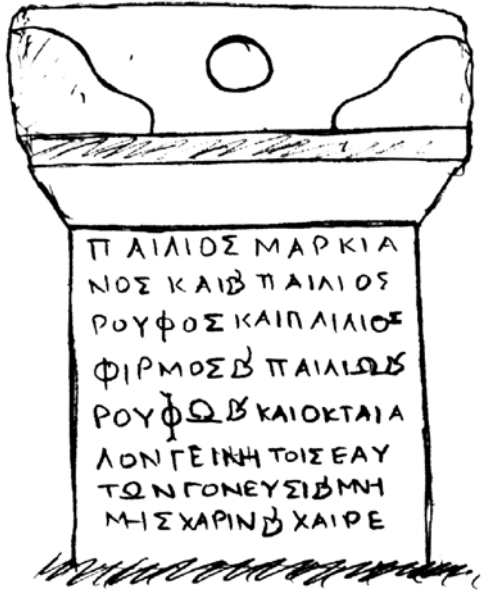 Π ΑΙΛΙΟΣ ΜΑΡΚΙΑ
ΝΟΣ ΚΑΙ ❦ ΠΑΙΛΙΟΣ
ΡΟΥΦΟΣ ΚΑΙΠΑΙΛΙΟΣ
ΦΙΡΜΟΣ ❦ ΠΑΙΛΙΩ ❦
ΡΟΥΦΩ ❦ ΚΑΙΟΚΤΑΙΑ
ΛΟΝΓΕΙΝΗ ΤΟΙΣ ΕΑΥ
ΤΩΝ ΓΟΝΕΥΣΙ ❦ ΜΝΗ
ΜΗΣ ΧΑΡΙΝ ❦ ΧΑΙΡΕ